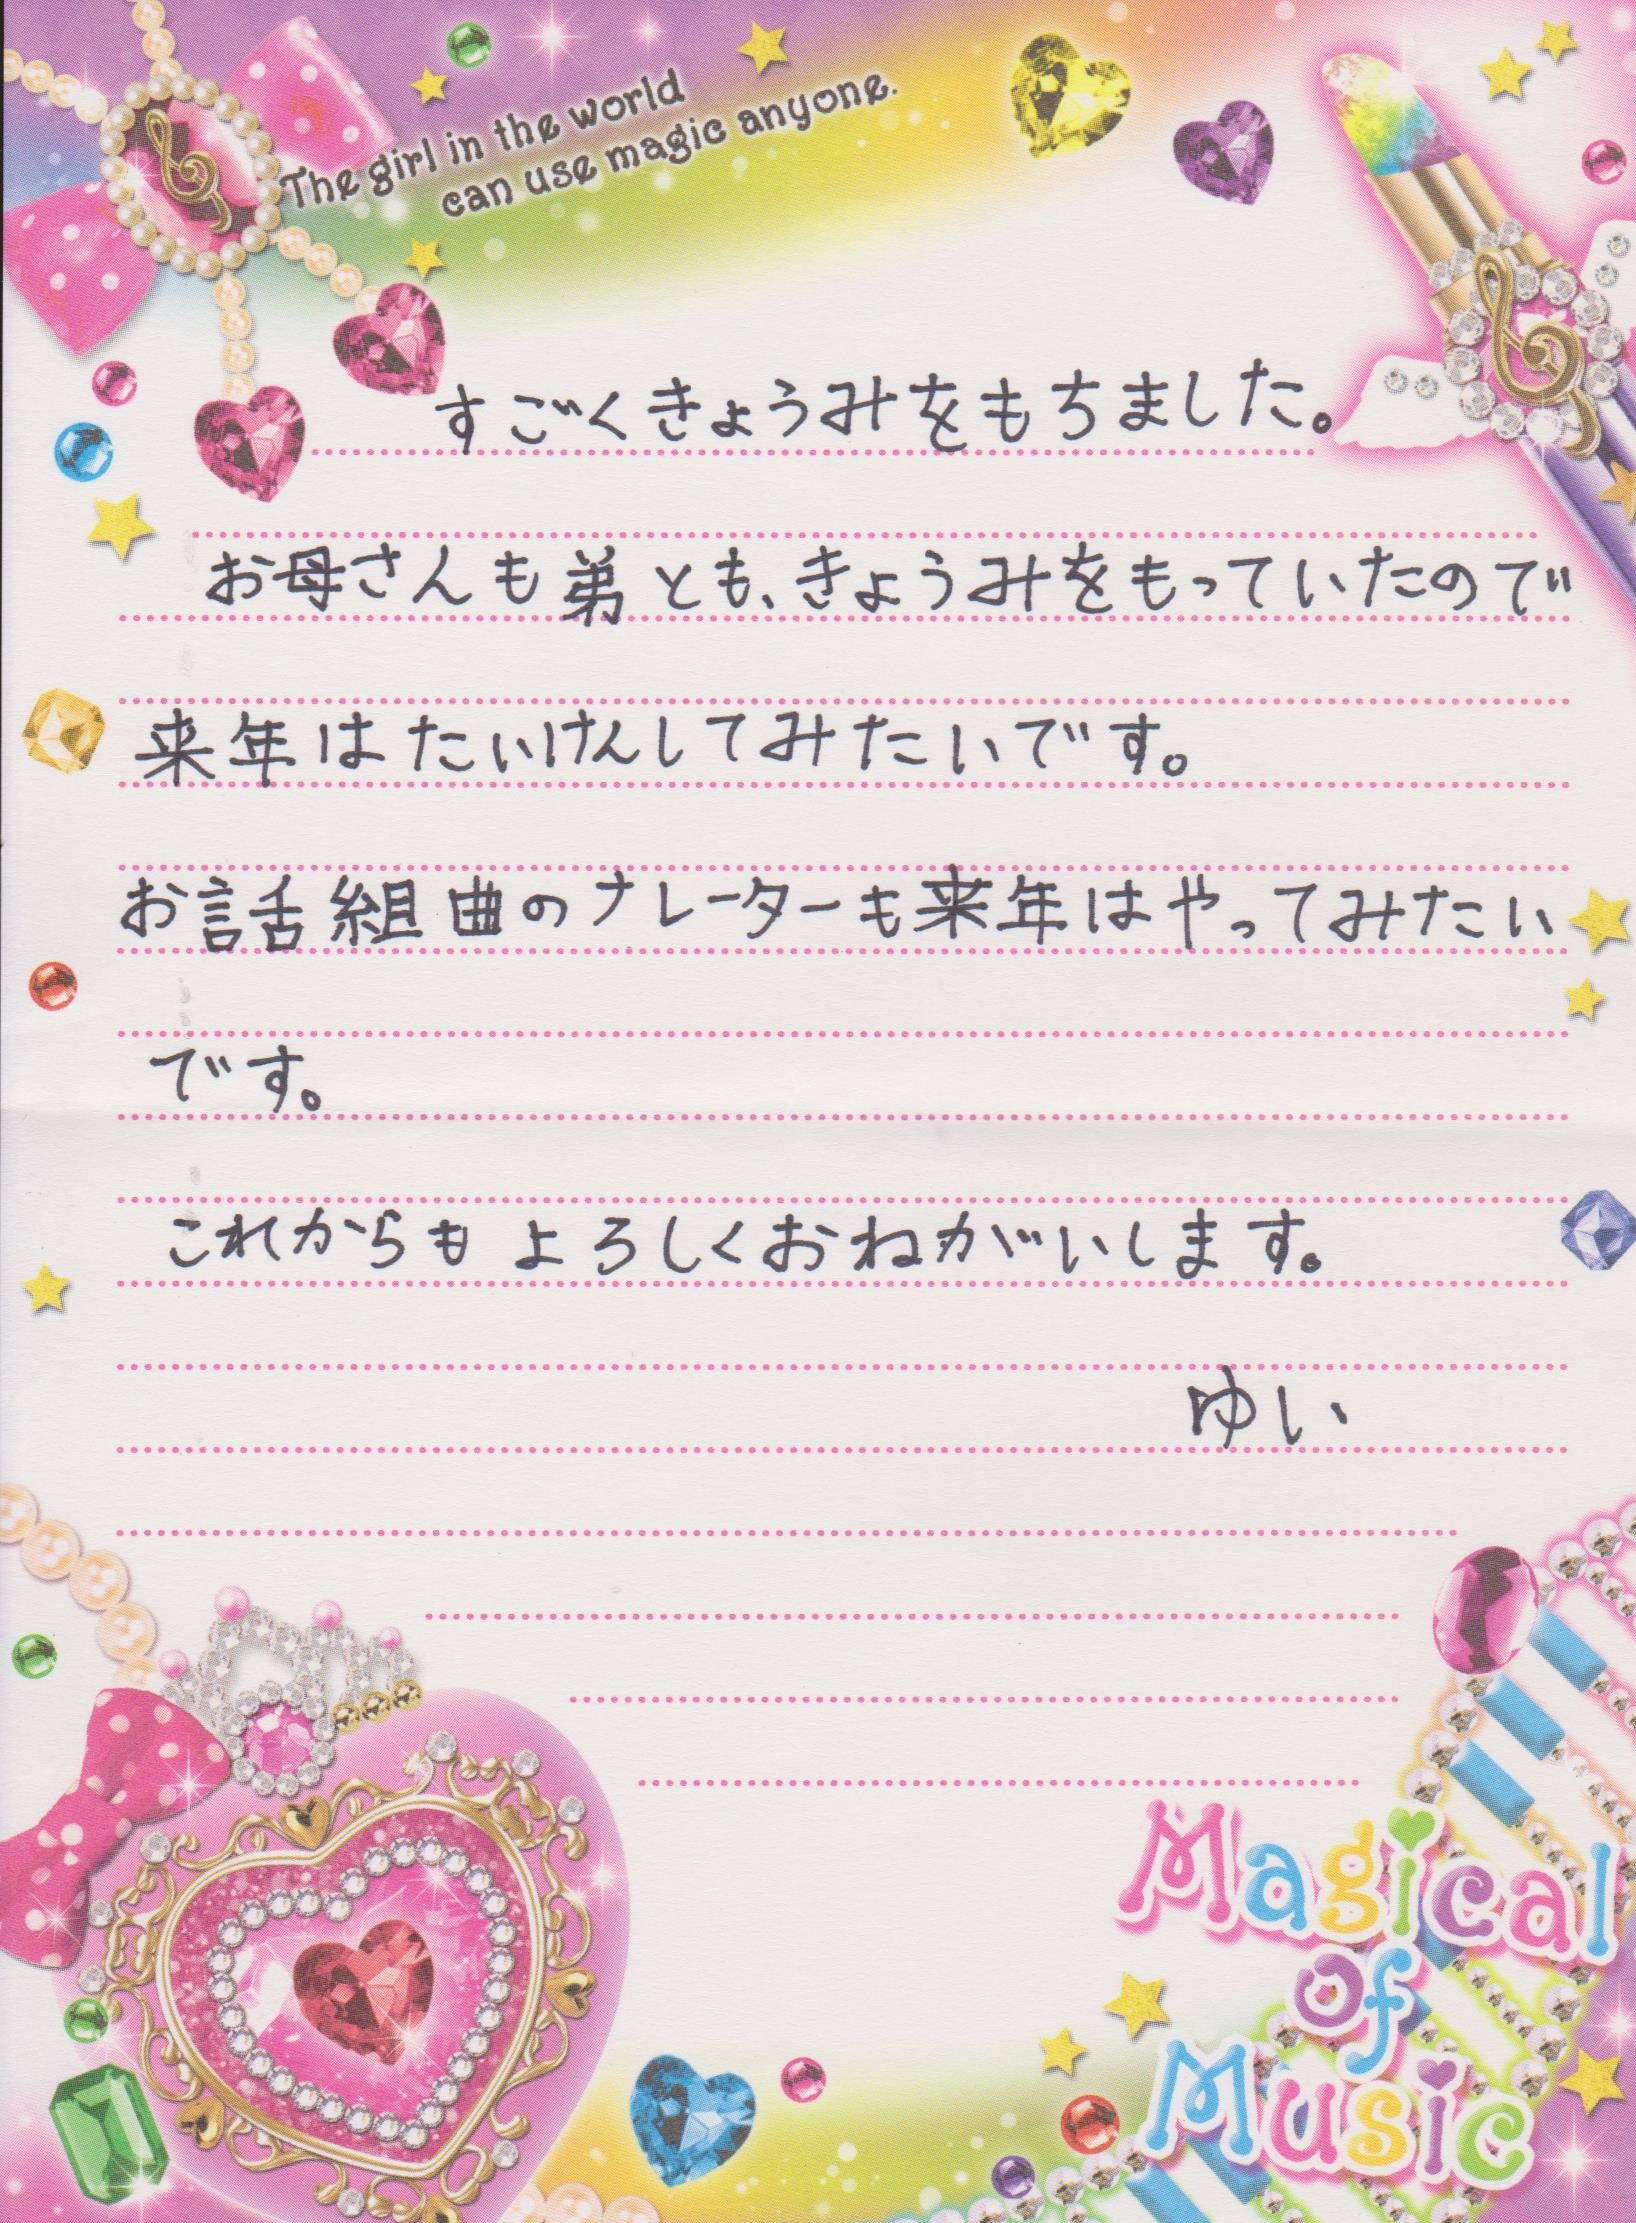 The girl in the world
can use magic anyone.
すごくきょうみをもちました。
お母さんも弟とも、きょうみをもっていたので
来年はたいけんしてみたいです。
お話組曲のナレーターも来年はやってみたい
です。
これからもよろしくおねがいします。
ゆい
Magical
of
Music